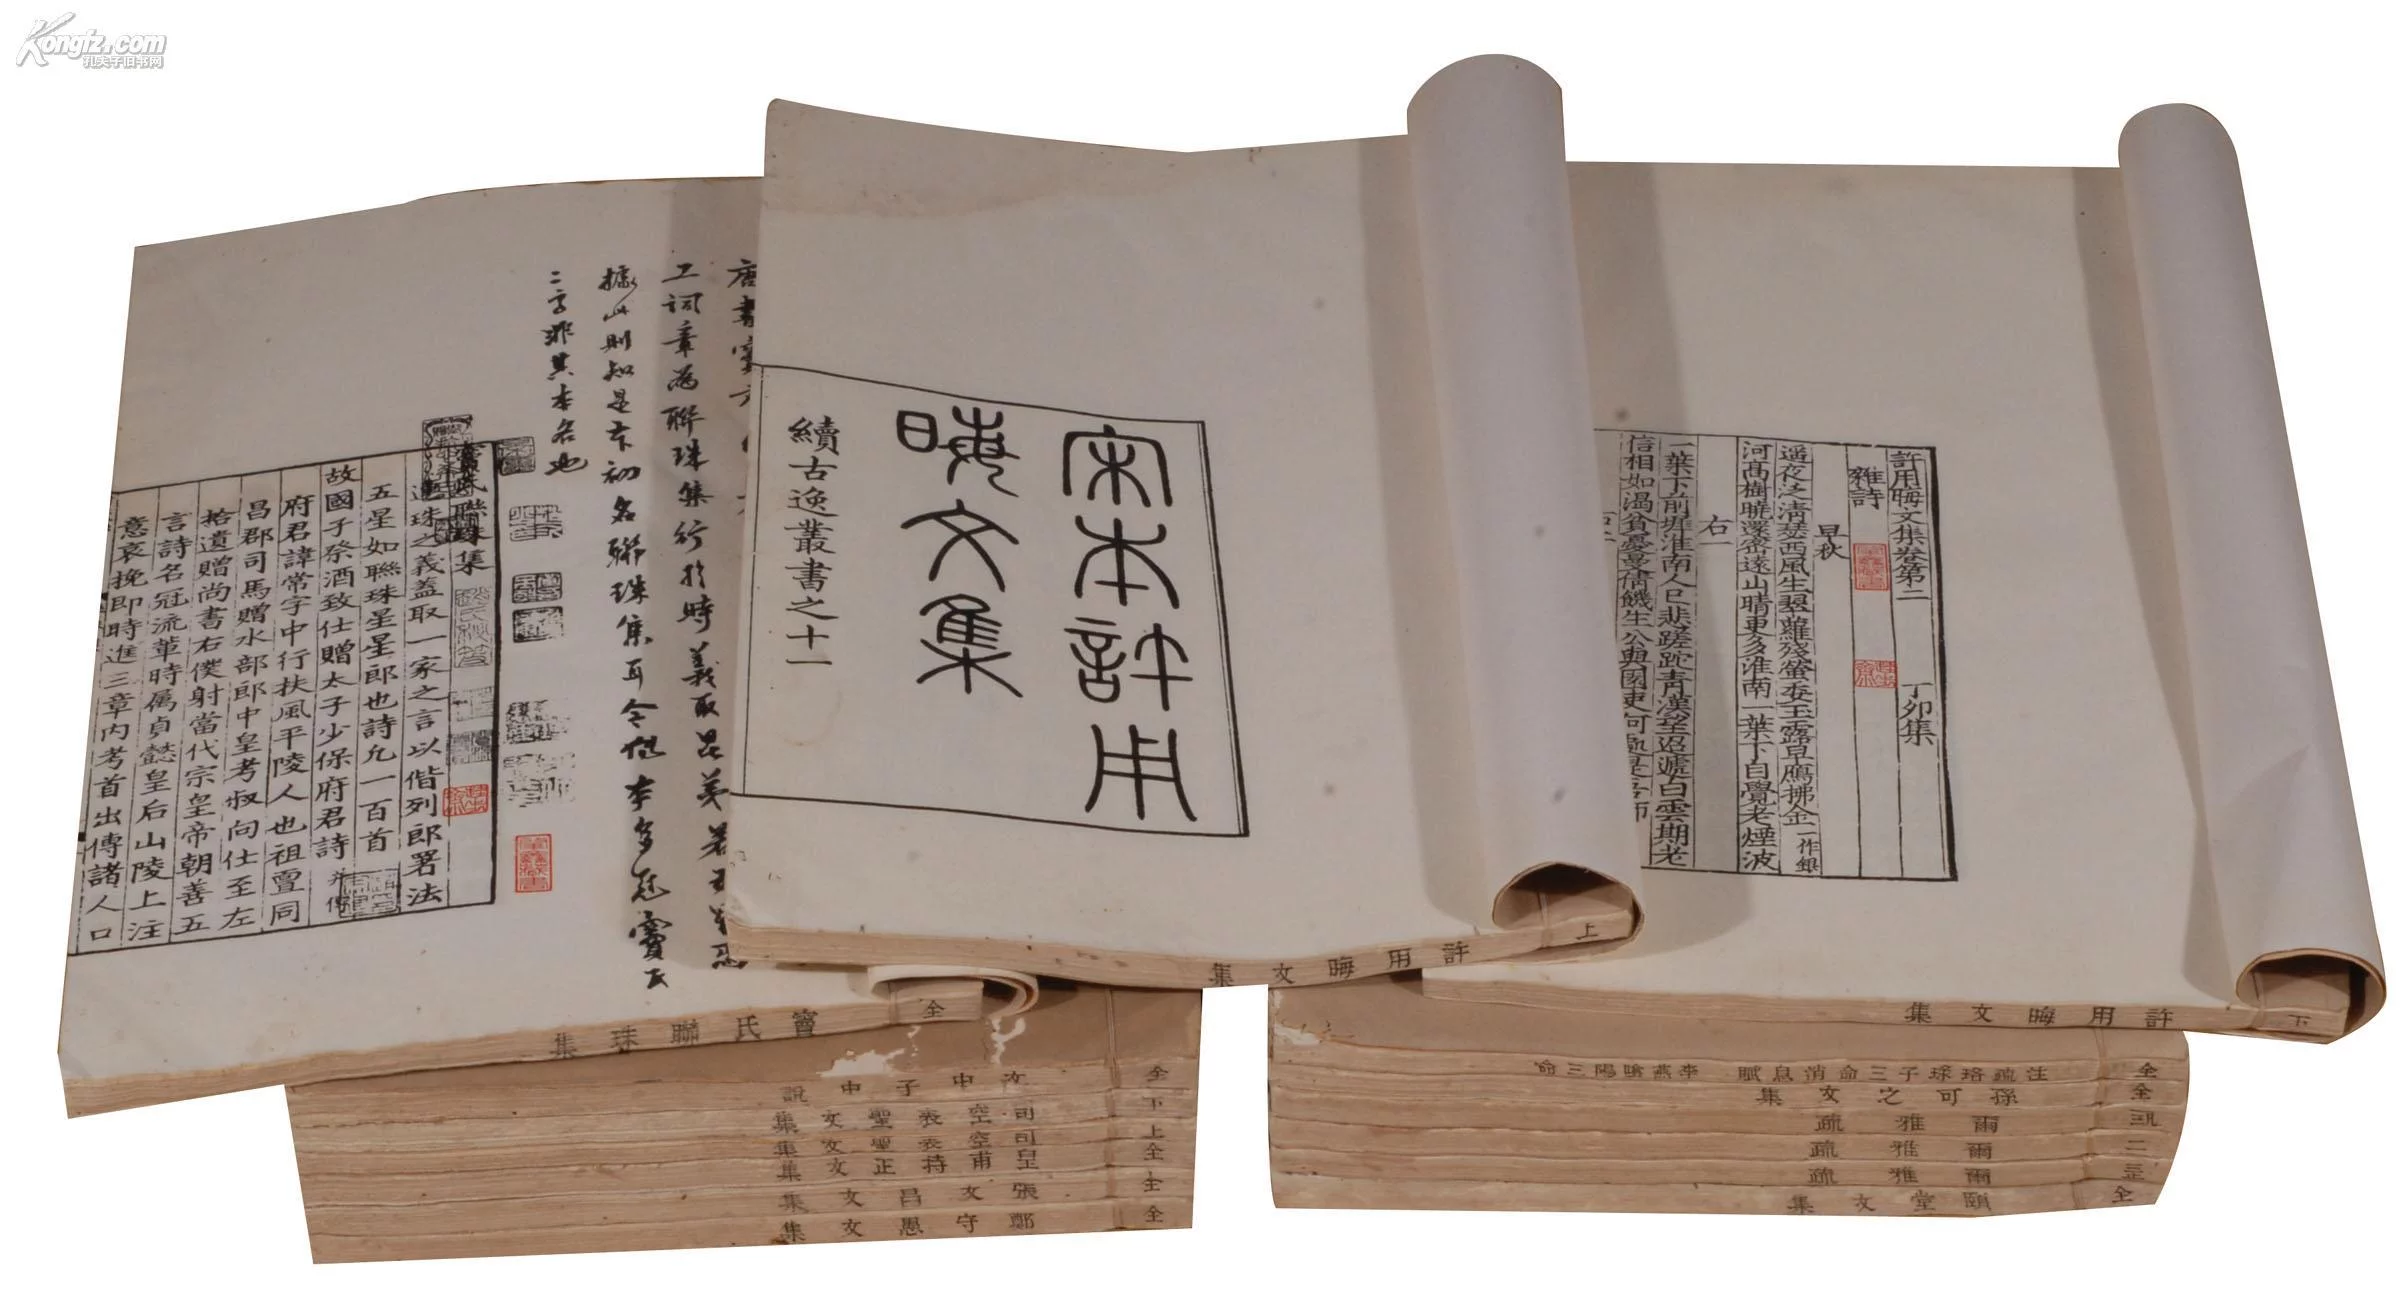 Kongfz.com
孔夫子旧书网
宋本許用
晦文集
續古逸叢書之十一
許用晦文集 上
許用晦文集卷第二 丁卯集
雜詩
早秋
遥夜泛清瑟西風生翠蘿殘螢委玉露早鴈拂金一作銀
河髙樹曉還密遠山晴更多淮南一葉下自覺老煙波
右一
一葉下前墀淮南人已悲蹉跎青漢望迢遞白雲期老
信相如渴貧憂曼倩饑生公與園吏何
許用晦文集 下
工詞章為聯珠集行於時義取昆弟若五星
據此則知是本初名聯珠集耳今他本多冠竇氏
二字非其本名也
聯珠集
聯珠之義蓋取一家之言以偕列郎署法
五星如聯珠星星郎也詩允一百首
故國子祭酒致仕贈太子少保府君詩并傳
府君諱常字中行扶風平陵人也祖亶同
昌郡司馬贈水部郎中皇考叔向仕至左
拾遺贈尚書右僕射當代宗皇帝朝善五
言詩名冠流輩時属貞懿皇后山陵上注
意哀挽即時進三章内考首出傳諸人口
竇氏聯珠集 全
文中子中說 全
司空表聖文集 下
司空表聖文集 上
皇甫持正文集 全
張文昌文集 全
鄭守愚文集 全
注疏珞琭子三命消息賦 李燕陰陽三命 全
孫可之文集 全
爾雅疏
爾雅疏 二
爾雅疏
頤堂文集 全